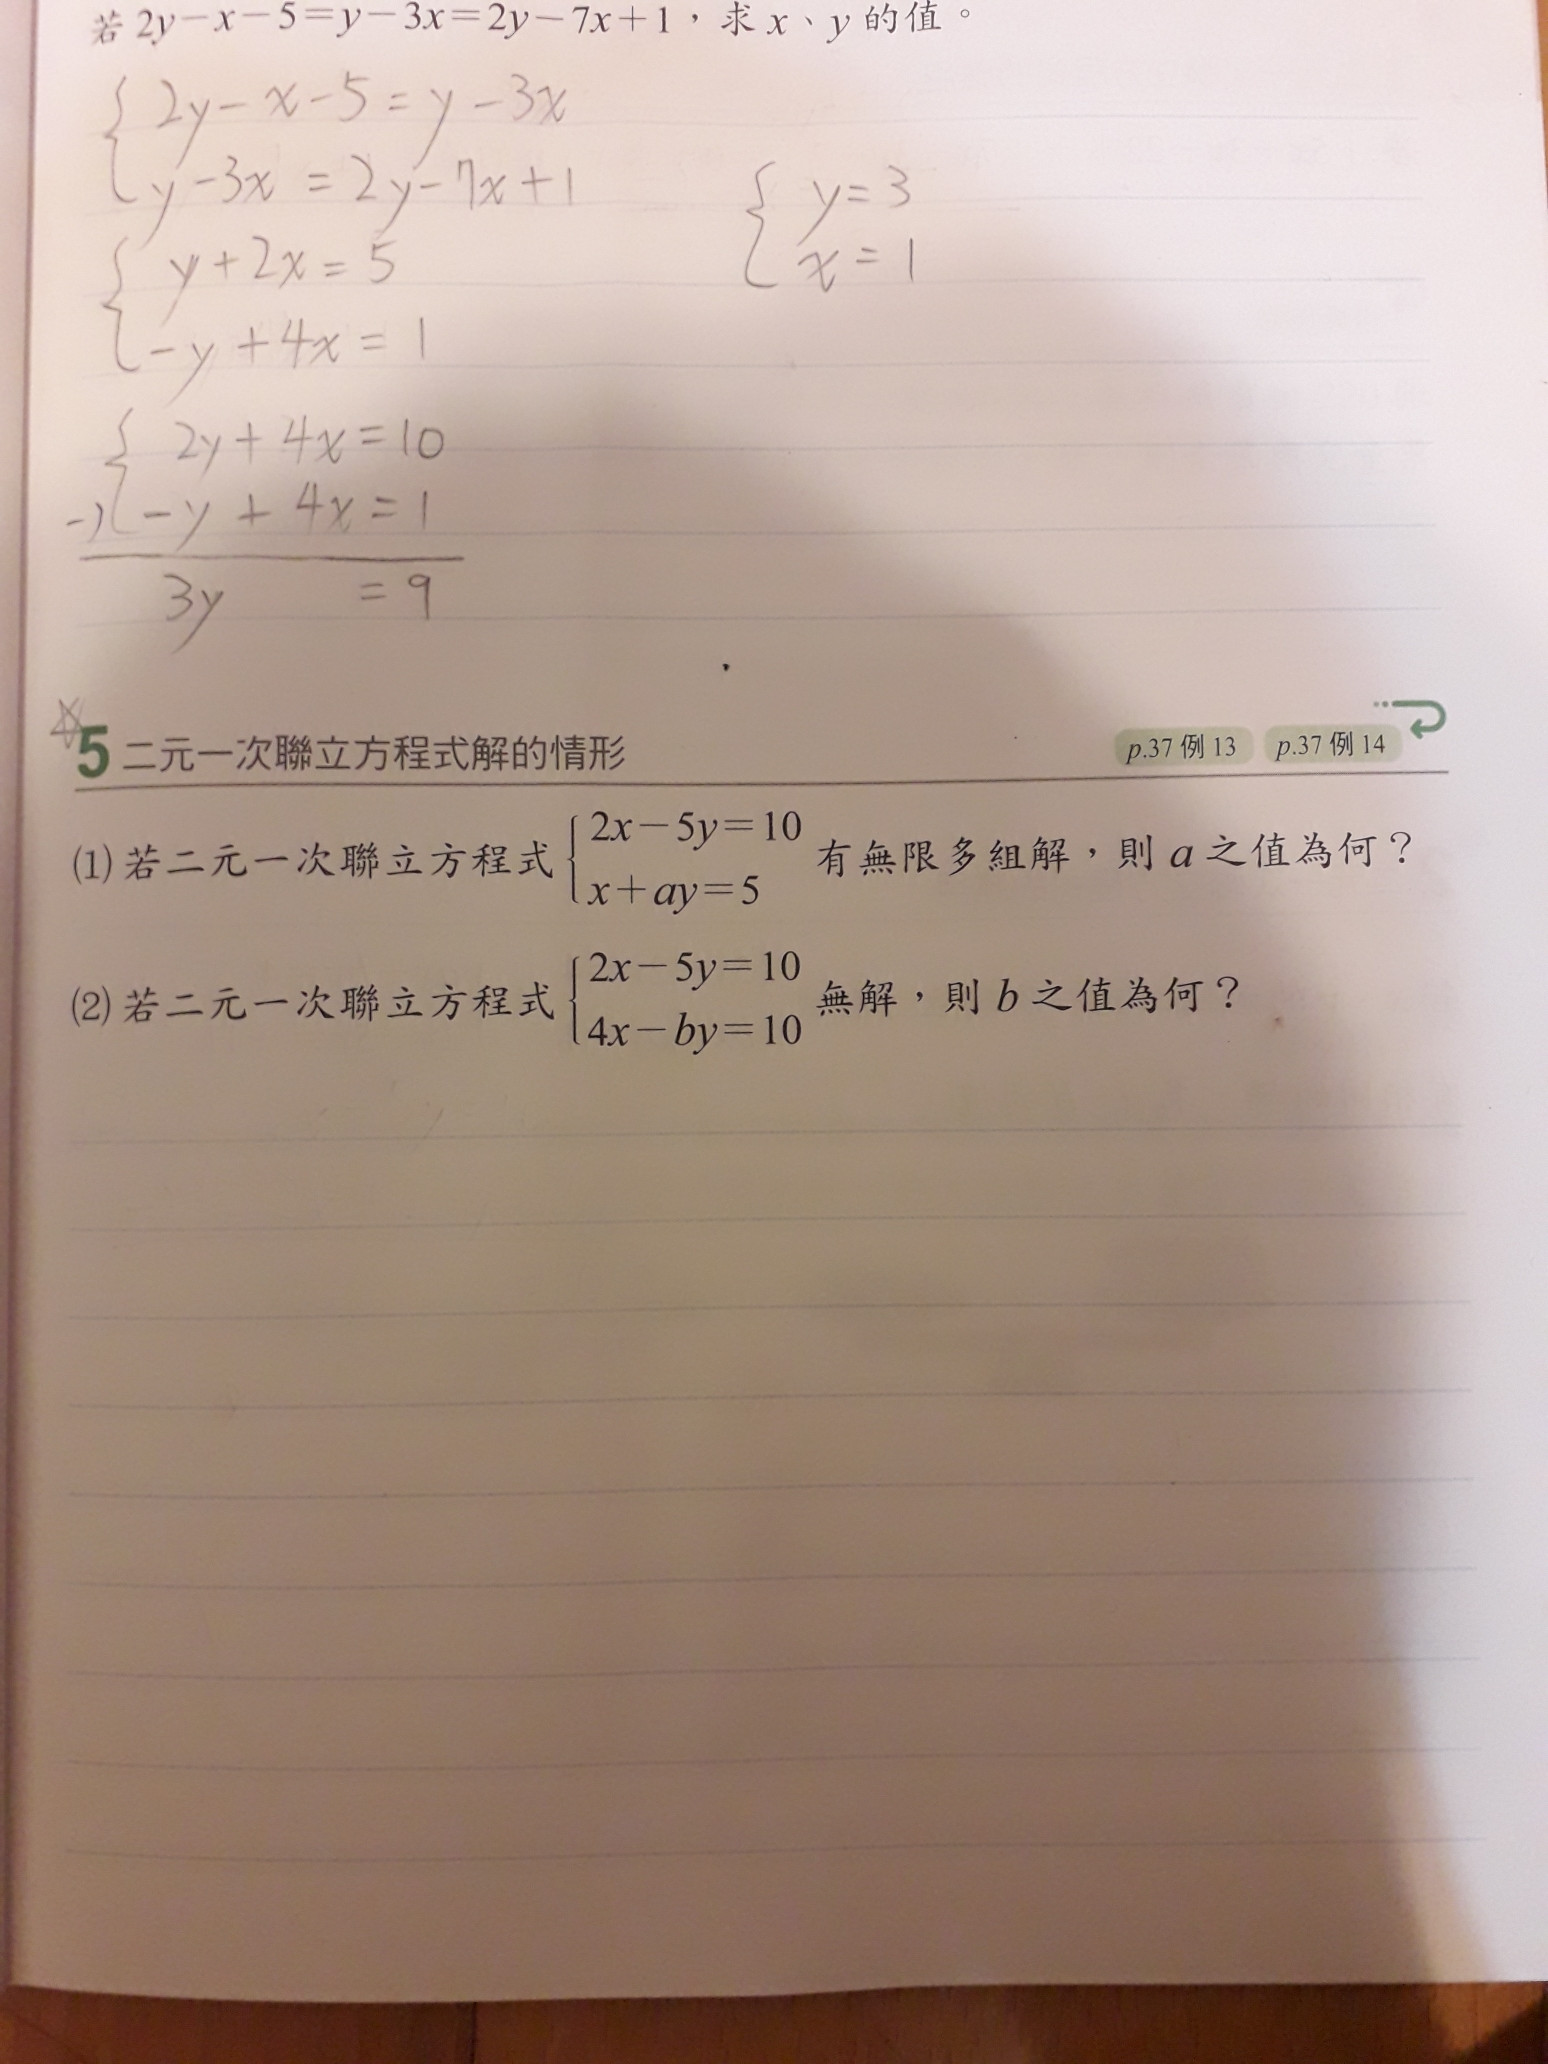 若 2y－x－5＝y－3x＝2y－7x＋1，求 x、y 的值。
2y－x－5＝y－3x
y－3x＝2y－7x＋1
y＋2x＝5
－y＋4x＝1
2y＋4x＝10
－) －y＋4x＝1
3y ＝9
y＝3
x＝1
☆
5 二元一次聯立方程式解的情形 p.37 例 13 p.37 例 14
⑴ 若二元一次聯立方程式 { 2x－5y＝10
x＋ay＝5 有無限多組解，則 a 之值為何？
⑵ 若二元一次聯立方程式 { 2x－5y＝10
4x－by＝10 無解，則 b 之值為何？